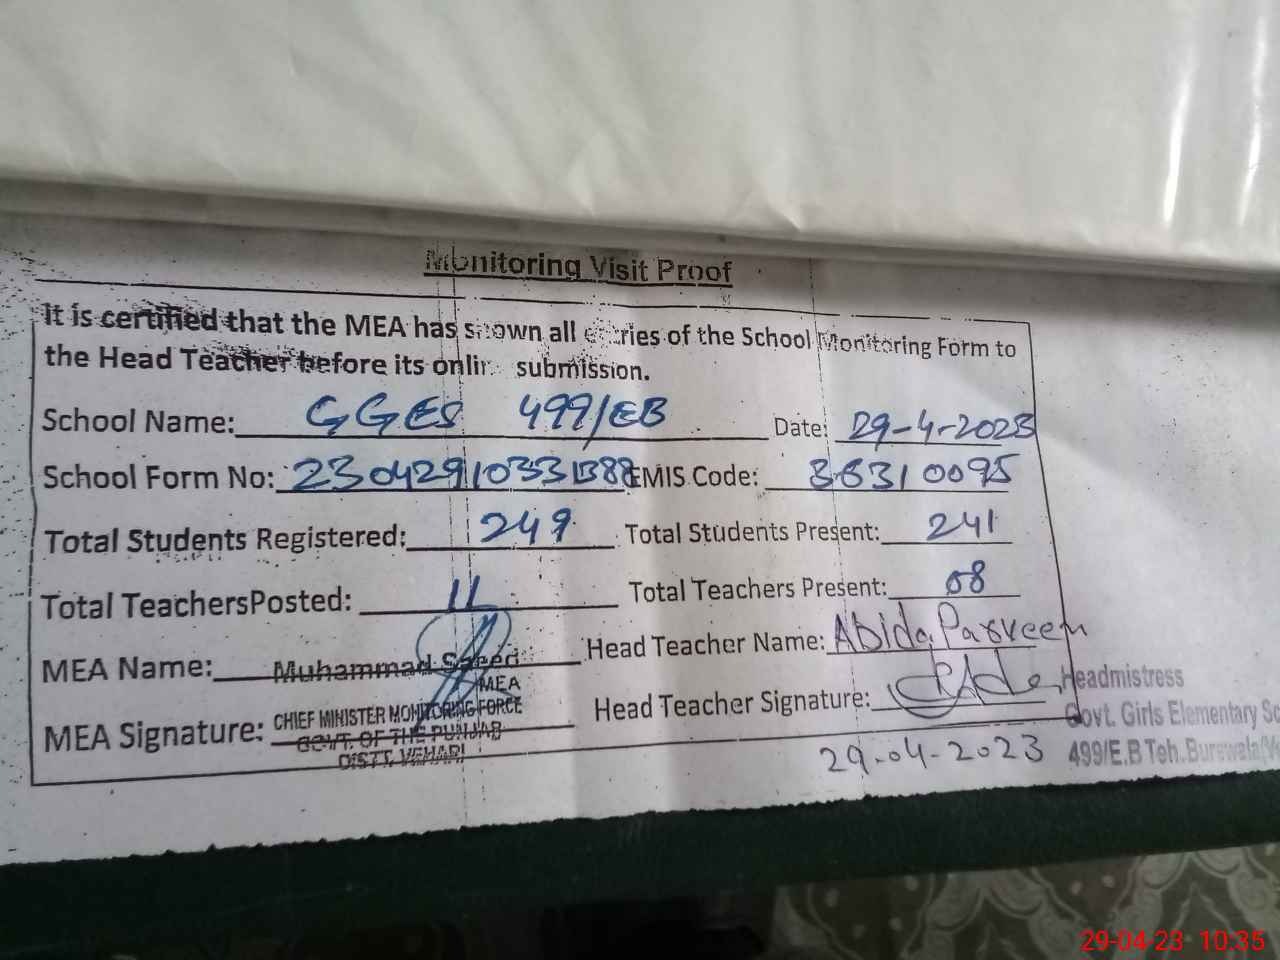 Monitoring Visit Proof
It is certified that the MEA has shown all entries of the School Monitoring Form to
the Head Teacher before its online submission.
School Name: GGES 499/EB Date: 29-4-2023
School Form No: 23042910331388 EMIS Code: 36310095
Total Students Registered: 249 Total Students Present: 241
Total TeachersPosted: 11 Total Teachers Present: 08
MEA Name: Muhammad Saeed Head Teacher Name: Abida Parveen
MEA
MEA Signature: CHIEF MINISTER MONITORING FORCE Head Teacher Signature:
GOVT. OF THE PUNJAB
DISTT. VEHARI
Headmistress
Govt. Girls Elementary Sc
29-04-2023 499/E.B Teh. Burewala(Ve
29-04-23 10:35